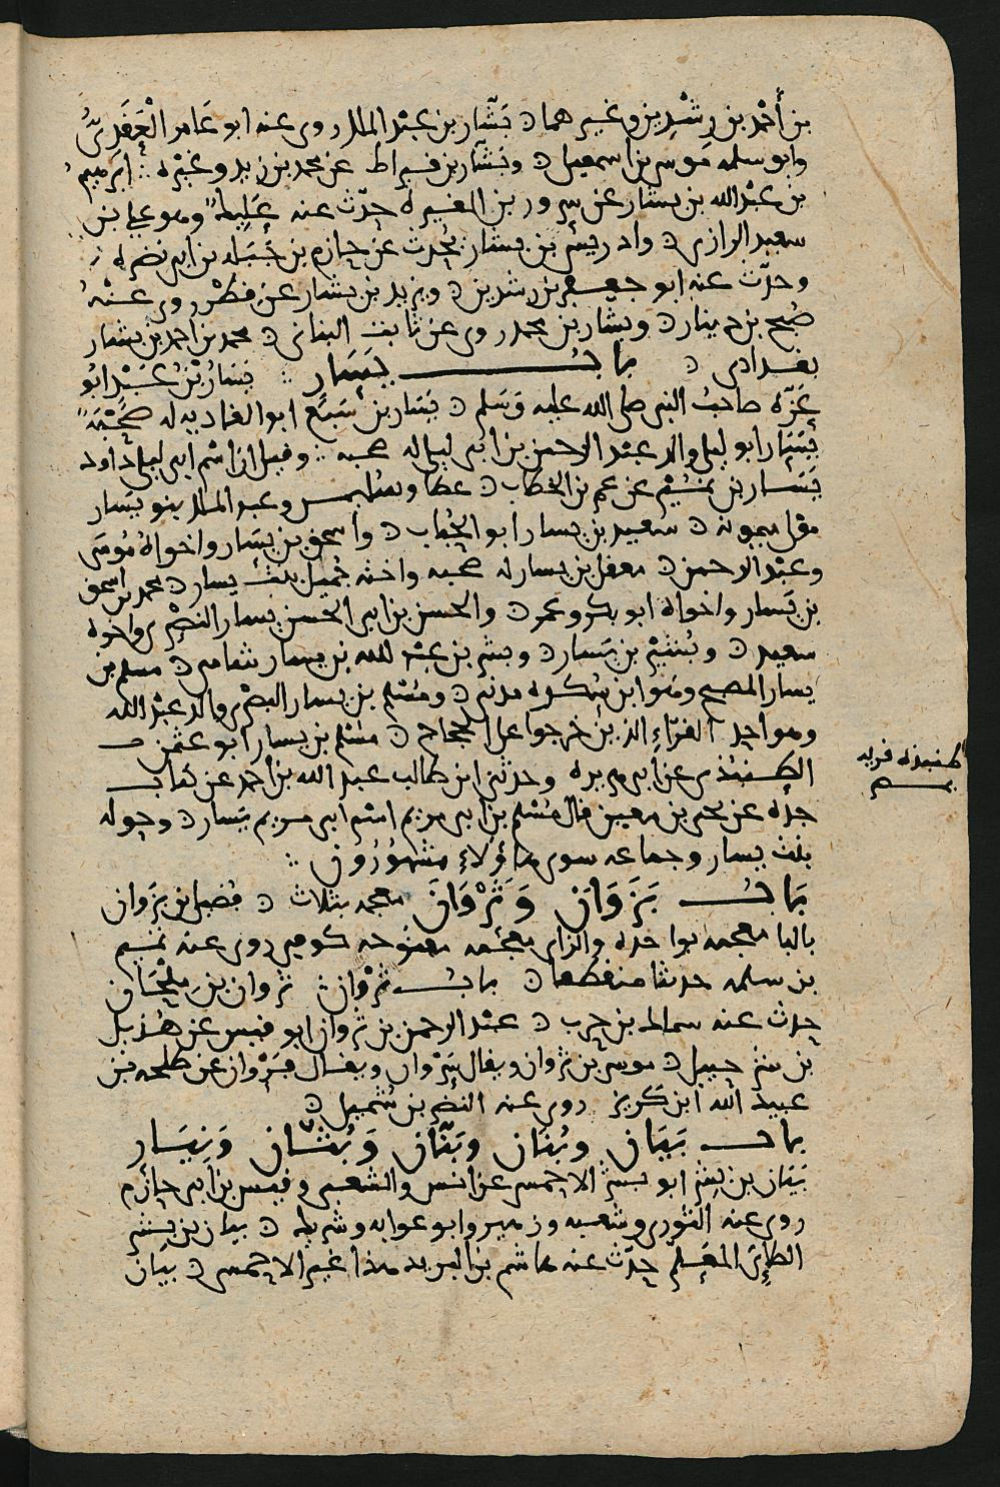 بن أحمد بن رشدين وغيرهما ه بشار بن عبد الملك روى عنه ابو عامر العقدي
وابو سلمه موسى بن اسمعيل ه وبشار بن قيراط عن محمد بن زيد وغيره ابرهيم
بن عبد الله بن بشار عن سرور بن المغيره حدث عنه عليك وهو علي بن
سعيد الرازي ه وادريس بن بشار يحدث عن حازم بن جبله بن ابي نضره
وحدث عنه ابو جعفر بن رشدين ه ويزيد بن بشار عن فطر روى عنه
صبح بن دينار ه وبشار بن محمد روى عن ثابت البناني ه محمد بن احمد بن بشار
بغدادي ه باب يسار يسار بن عبد ابو
عزه صاحب النبي صلى الله عليه وسلم ه يسار بن سبع ابو الغاديه له صحبة
يسار ابو ليلى والد عبد الرحمن بن ابي ليلى له صحبه وقيل ان اسم ابي ليلى داود
يسار بن نمير عن عمر بن الخطاب ه عطا وسليمن وعبد الملك بنو يسار
مولى ميمونه ه سعيد بن يسار ابو الحباب ه واسحق بن يسار واخواه موسى
وعبد الرحمن ه معقل بن يسار له صحبه واخته جميل بنت يسار ه محمد بن اسحق
بن يسار واخواه ابو بكر وعمر ه والحسن بن ابي الحسن يسار البصري واخوه
سعيد ه وبشير بن يسار ه وبشر بن عبد الله بن يسار شامي ه مسلم بن
يسار المصبح وهو ابن سكره مدني ه ومسلم بن يسار البصري والد عبد الله
وهو احد القراء الذين خرجوا على الحجاج ه مسلم بن يسار ابو عثمن
الطنبذي عن ابي هريره وحدثني ابن طالب عبد الله بن احمد عن كتاب
جده عن يحيى بن معين قال مسلم بن ابي مريم اسم ابي مريم يسار ه وخوله
بنت يسار وجماعه سوى هاؤلاء مشهورون
باب بزوان وثروان معجمه بثلاث ه فضيل بن بزوان
بالبا معجمه بواحده والزاي معجمه مفتوحه كوفي روى عنه نعيم
بن سلمه حديثا منقطعا ه باب ثروان ثروان بن ملحان
حدث عنه سماك بن حرب ه عبد الرحمن بن ثروان ابو قيس عن هزيل
بن شرحبيل ه موسى بن ثروان ويقال سروان ويقال فروان عن طلحه بن
عبيد الله ابن كريز روى عنه النضر بن شميل ه
باب بيان وبنان وبنان وبشان ونيسار
بيان بن بشر ابو بشر الاحمسي عن انس والشعبي وقيس بن ابي حازم
روى عنه الثوري وشعبه وزهير وابو عوانه وشريك ه بيان بن بشر
الطائي المعلم حدث عنه هاشم بن البريد هذا غير الاحمسي ه بيان
طنبذه قريه
بمصر